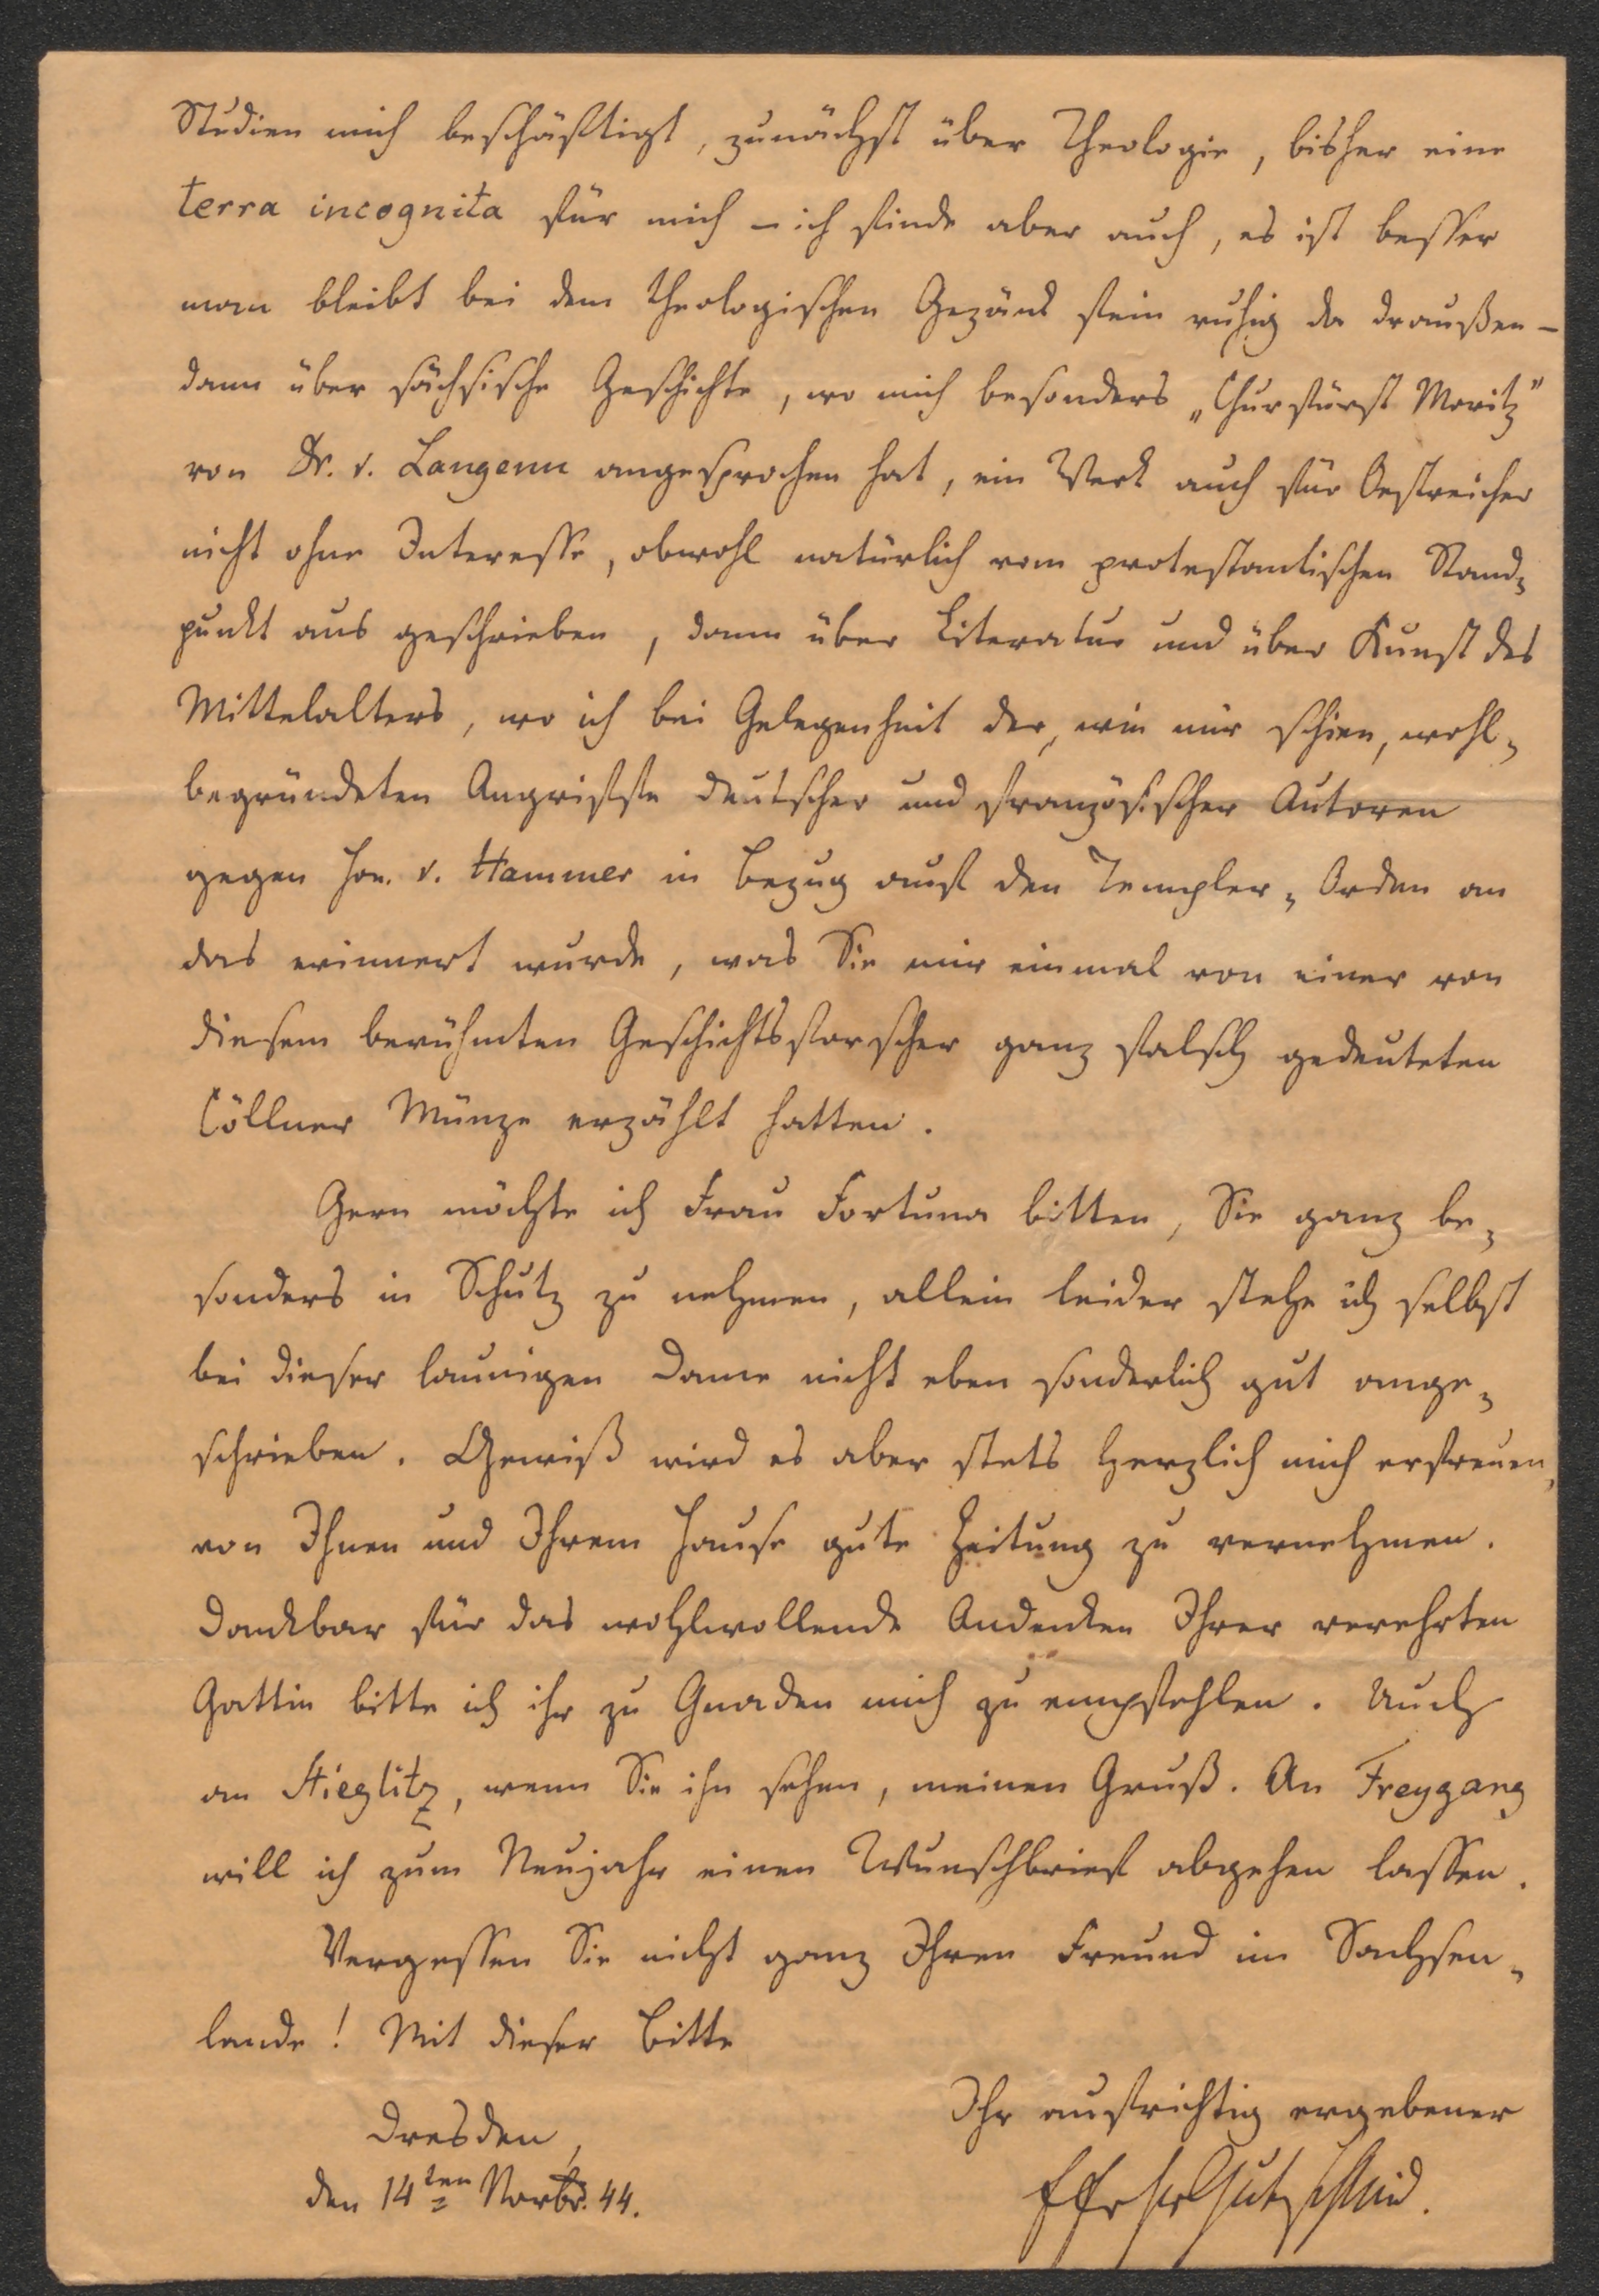 Studien mich beschäftigt, zunächst über Theologie, bisher eine
terra incognita für mich – ich finde aber auch, es ist besser
man bleibt bei dem theologischen Gezänk fein ruhig da draußen –
dann über sächsische Geschichte, wo mich besonders „Churfürst Moritz"
von Dr. v. Langenn angesprochen hat, ein Werk auch für Oestreicher
nicht ohne Interesse, obwohl natürlich vom protestantischen Stand-
punkt aus geschrieben, dann über Literatur und über Kunst des
Mittelalters, wo ich bei Gelegenheit der, wie mir schien, wohl-
begründeten Angriffe deutscher und französischer Autoren
gegen Hrn. v. Hammer in Bezug auf den Templer-Orden an
das erinnert wurde, was Sie mir einmal von einer von
diesem berühmten Geschichtsforscher ganz falsch gedeuteten
Cöllner Münze erzählt hatten.
Gern möchte ich Frau Fortuna bitten, Sie ganz be-
sonders in Schutz zu nehmen, allein leider stehe ich selbst
bei dieser launigen Dame nicht eben sonderlich gut ange-
schrieben. Gewiß wird es aber stets herzlich mich erfreuen,
von Ihnen und Ihrem Hause gute Zeitung zu vernehmen.
Dankbar für das wohlwollende Andenken Ihrer verehrten
Gattin bitte ich ihr zu Gnaden mich zu empfehlen. Auch
an Stieglitz, wenn Sie ihn sehen, meinen Gruß. An Freygang
will ich zum Neujahr einen Wunschbrief abgehen lassen.
Vergessen Sie nicht ganz Ihren Freund im Sachsen-
lande! Mit dieser Bitte
Ihr aufrichtig ergebener
Dresden,
den 14ten Novbr. 44.
Gutschmid.